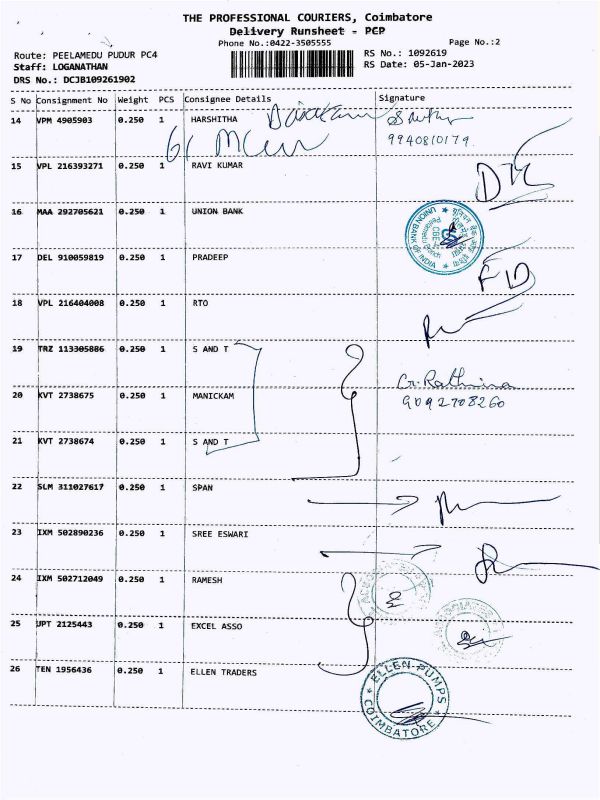 THE PROFESSIONAL COURIERS, Coimbatore
Delivery Runsheet - PCP
Phone No.:0422-3505555
Page No.:2
Route: PEELAMEDU PUDUR PC4
RS No.: 1092619
Staff: LOGANATHAN
RS Date: 05-Jan-2023
DRS No.: DCJB109261902
S No Consignment No Weight PCS Consignee Details Signature
14 VPM 4905903 0.250 1 HARSHITHA
9940810179.
15 VPL 216393271 0.250 1 RAVI KUMAR
16 MAA 292705621 0.250 1 UNION BANK
UNION BANK OF INDIA
17 DEL 910059819 0.250 1 PRADEEP
FD
18 VPL 216404008 0.250 1 RTO
19 TRZ 113305886 0.250 1 S AND T
G. Rathina
20 KVT 2738675 0.250 1 MANICKAM
9092708260
21 KVT 2738674 0.250 1 S AND T
22 SLM 311027617 0.250 1 SPAN
23 IXM 502890236 0.250 1 SREE ESWARI
24 IXM 502712049 0.250 1 RAMESH
25 JPT 2125443 0.250 1 EXCEL ASSO
26 TEN 1956436 0.250 1 ELLEN TRADERS
ELLEN PUMPS
COIMBATORE